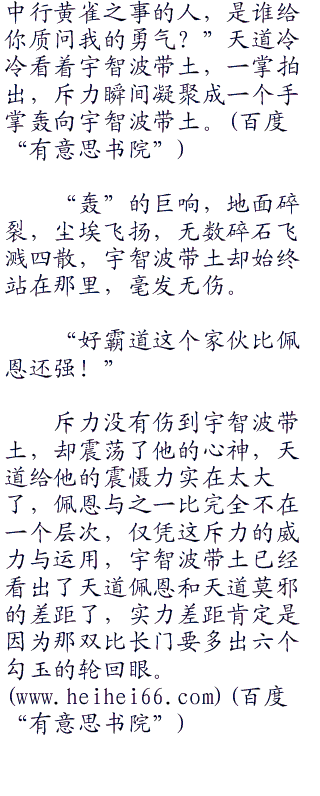 中行黄雀之事的人，是谁给
你质问我的勇气？”天道冷
冷看着宇智波带土，一掌拍
出，斥力瞬间凝聚成一个手
掌轰向宇智波带土。(百度
“有意思书院”)
“轰”的巨响，地面碎
裂，尘埃飞扬，无数碎石飞
溅四散，宇智波带土却始终
站在那里，毫发无伤。
“好霸道这个家伙比佩
恩还强！”
斥力没有伤到宇智波带
土，却震荡了他的心神，天
道给他的震慑力实在太大
了，佩恩与之一比完全不在
一个层次，仅凭这斥力的威
力与运用，宇智波带土已经
看出了天道佩恩和天道莫邪
的差距了，实力差距肯定是
因为那双比长门要多出六个
勾玉的轮回眼。
(www.heihei66.com)(百度
“有意思书院”)